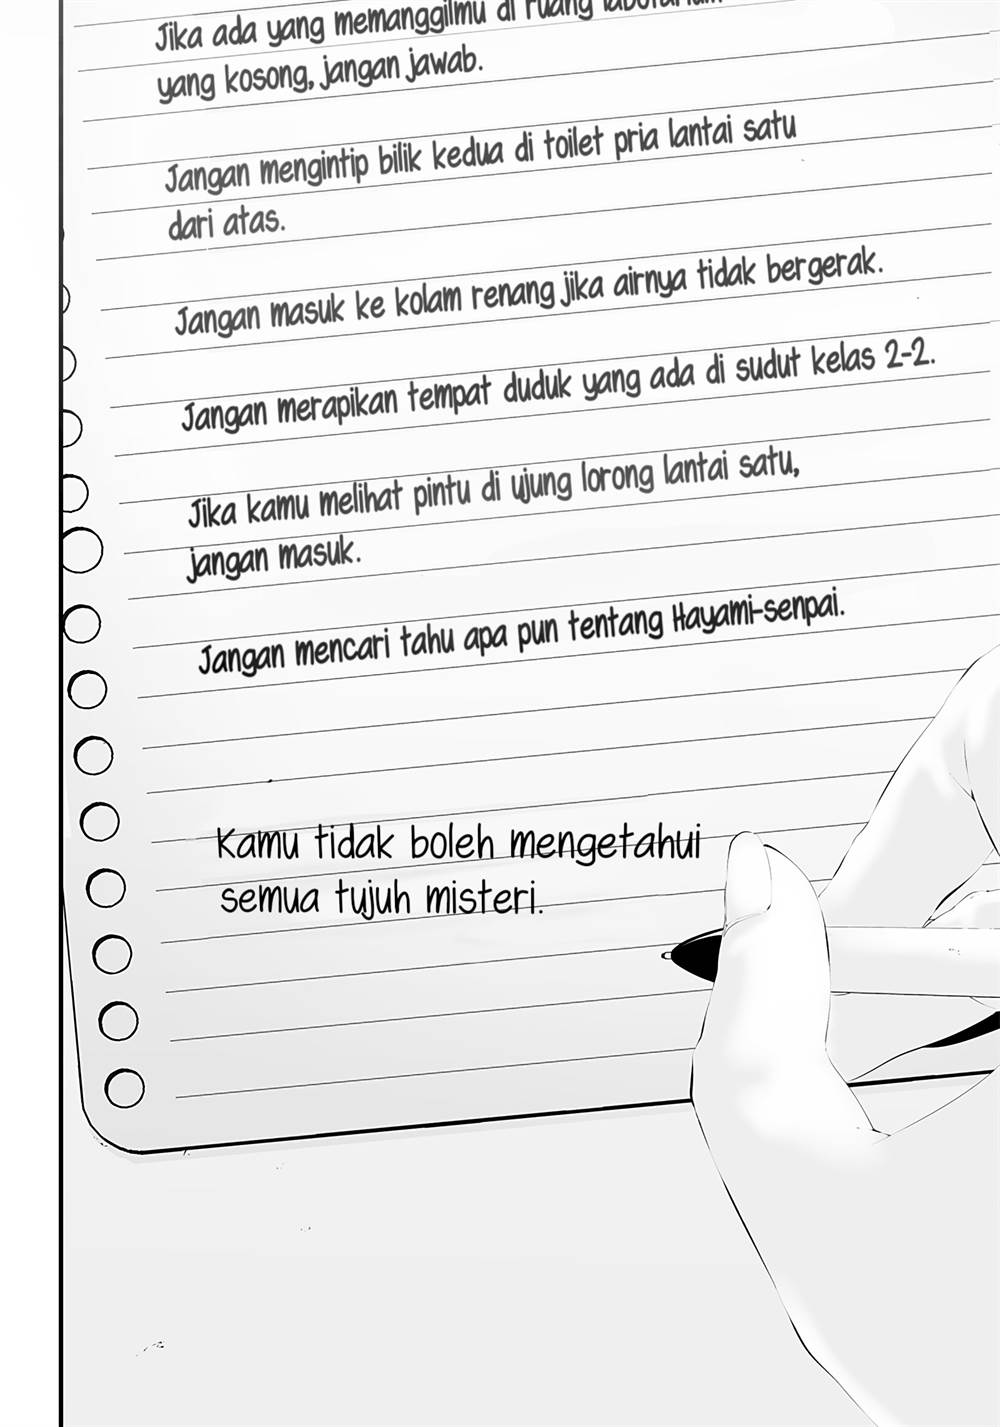 Jika ada yang memanggilmu di ruang laboratorium
yang kosong, jangan jawab.
Jangan mengintip bilik kedua di toilet pria lantai satu
dari atas.
Jangan masuk ke kolam renang jika airnya tidak bergerak.
Jangan merapikan tempat duduk yang ada di sudut kelas 2-2.
Jika kamu melihat pintu di ujung lorong lantai satu,
jangan masuk.
Jangan mencari tahu apa pun tentang Hayami-senpai.
Kamu tidak boleh mengetahui
semua tujuh misteri.